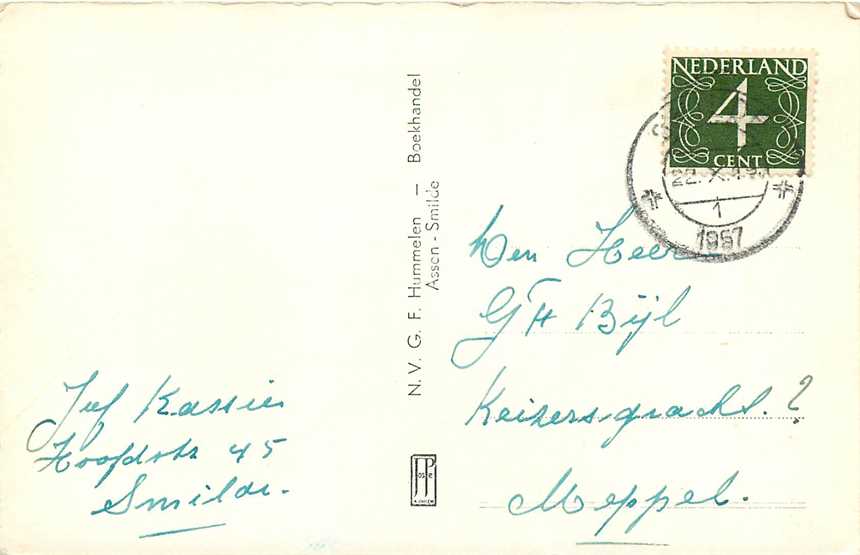 NEDERLAND
4
CENT
22.X.
1
1957
N. V. G. F. Hummelen — Boekhandel
Assen - Smilde
Den Heer
G H Bijl
Keizersgracht. ?
Meppel.
Juf Kassies
Hoofdstr 45
Smilde.
JosPe